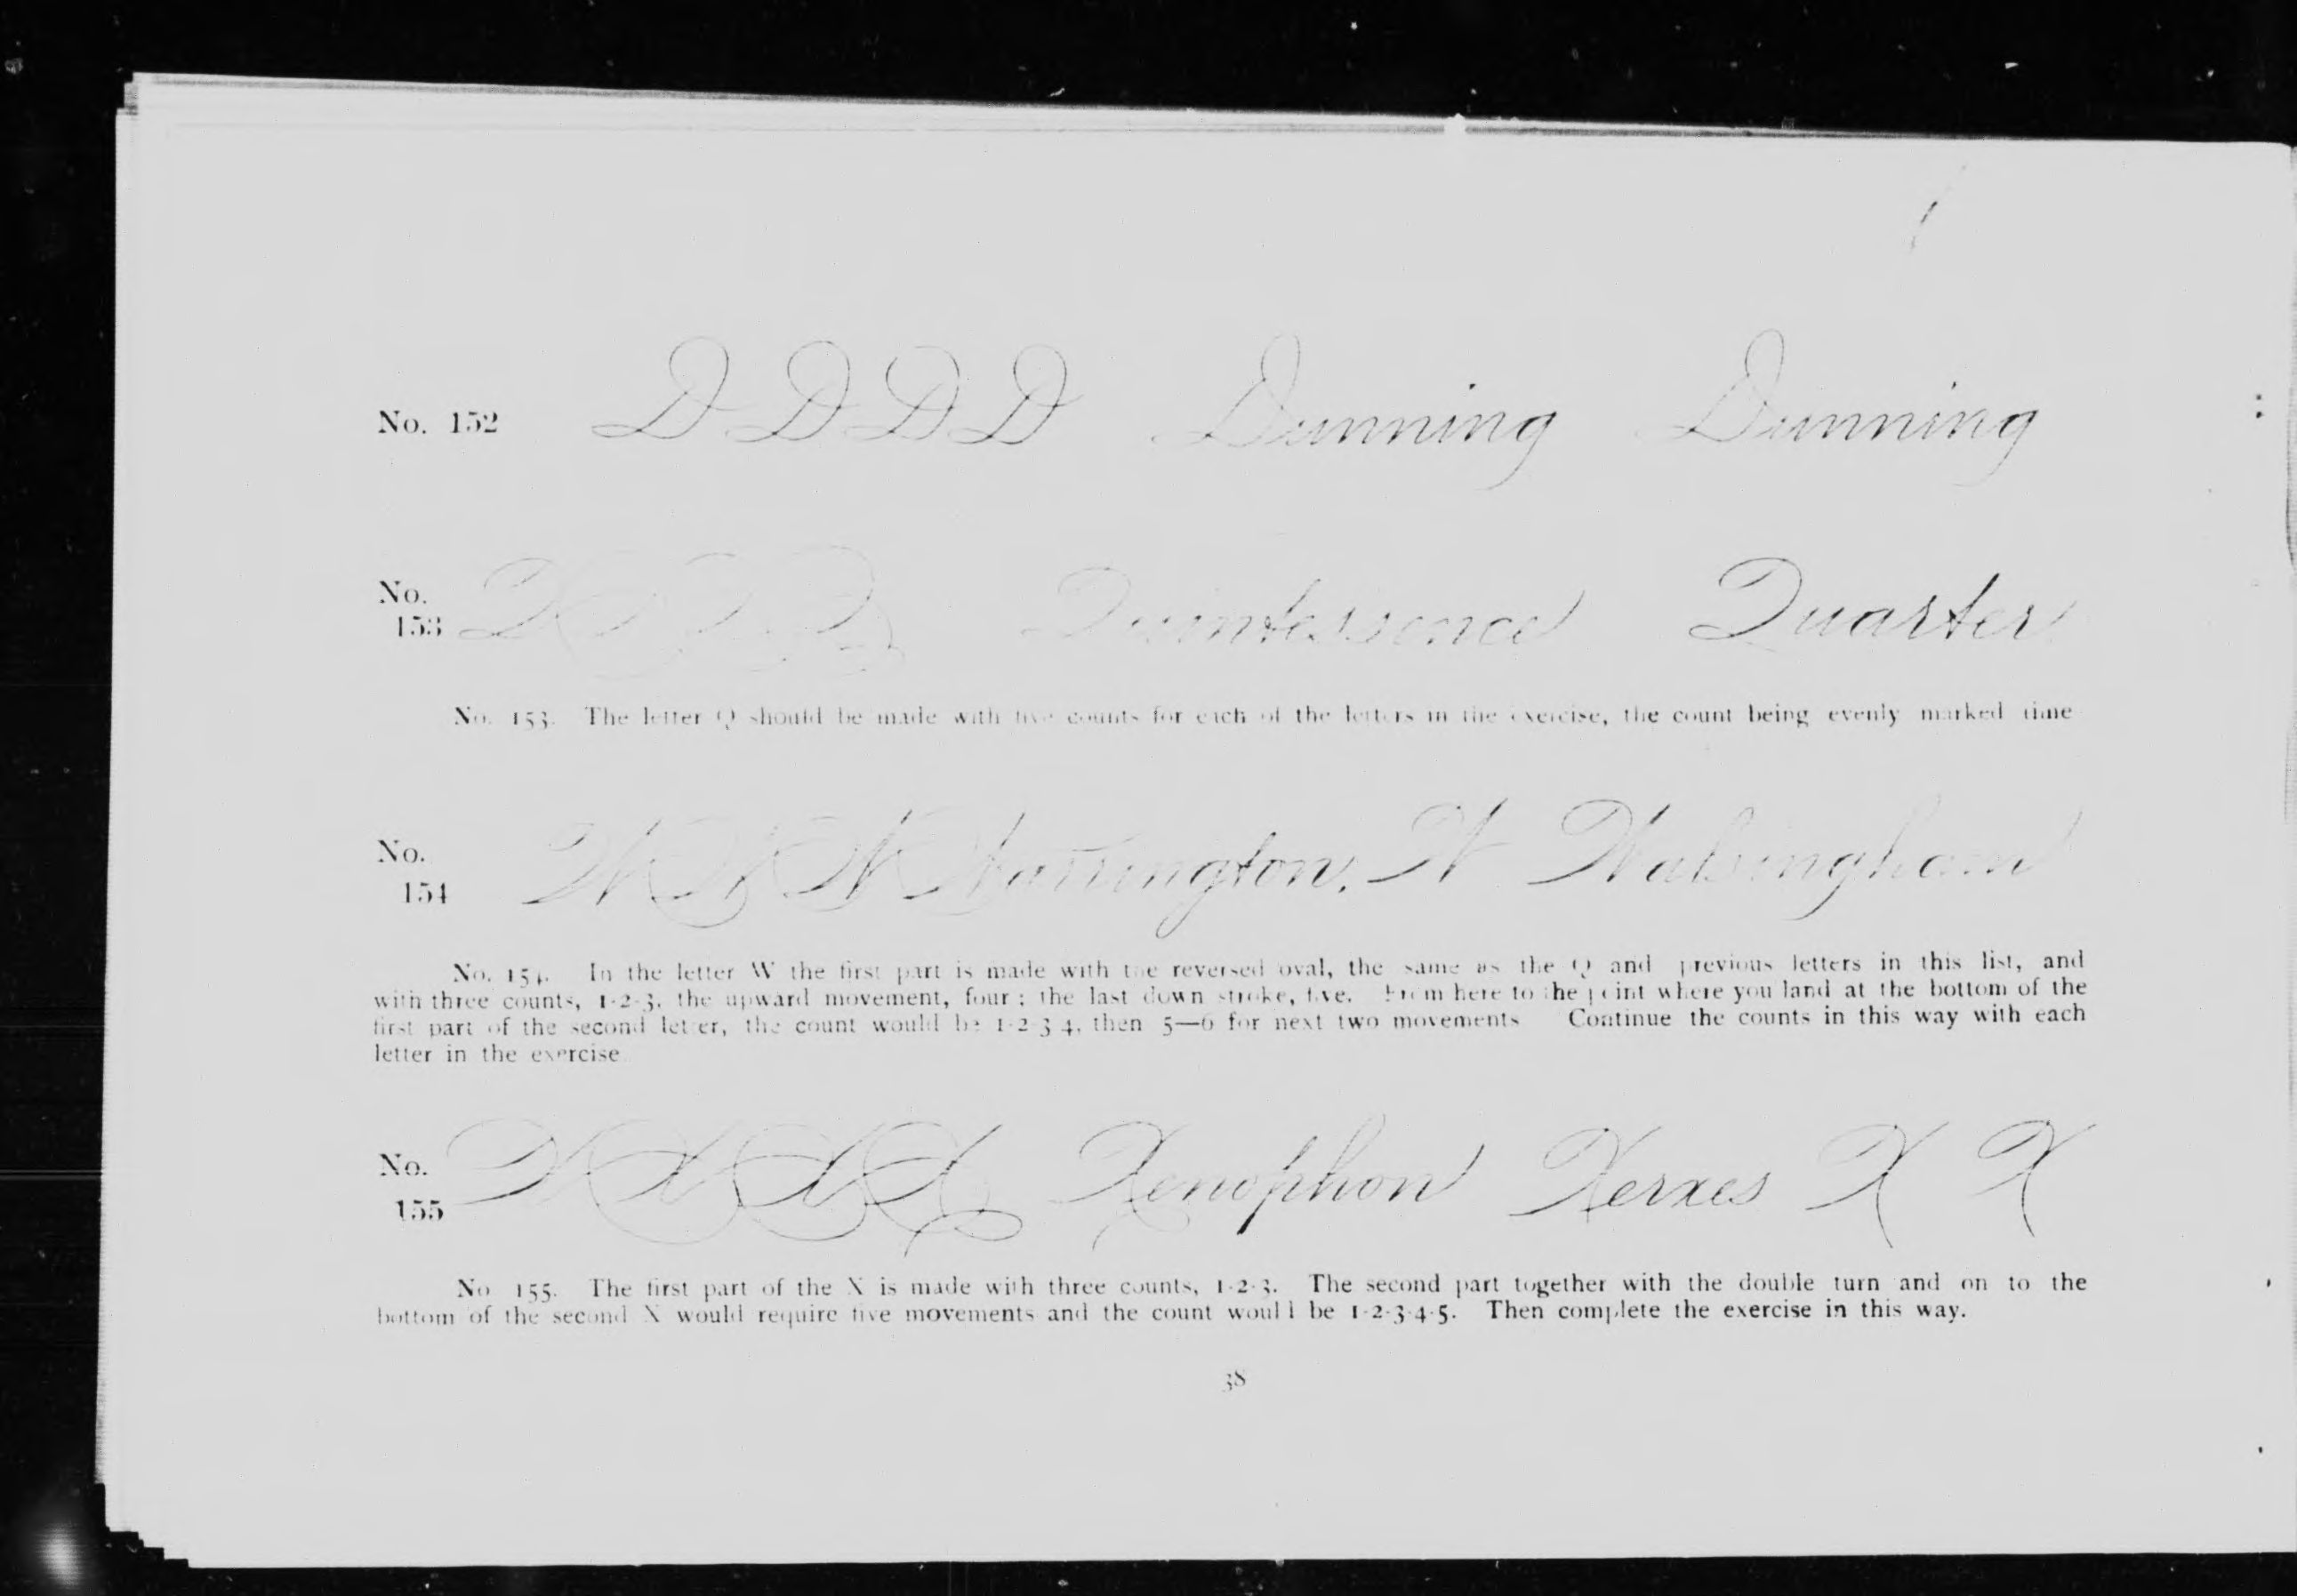 No. 152 D D D D Dunning Dunning
No.
153 Q Q Q Q Quintessence Quarter
No. 153. The letter Q should be made with five counts for each of the letters in the exercise, the count being evenly marked time
No.
154 W W W Warrington, W Walsingham
No. 154. In the letter W the first part is made with the reversed oval, the same as the Q and previous letters in this list, and
with three counts, 1-2-3, the upward movement, four; the last down stroke, five. From here to the point where you land at the bottom of the
first part of the second letter, the count would be 1-2-3-4, then 5—6 for next two movements Continue the counts in this way with each
letter in the exercise
No.
155 X X X X Xenophon Xerxes X X
No 155. The first part of the X is made with three counts, 1-2-3. The second part together with the double turn and on to the
bottom of the second X would require five movements and the count would be 1-2-3-4-5. Then complete the exercise in this way.
38